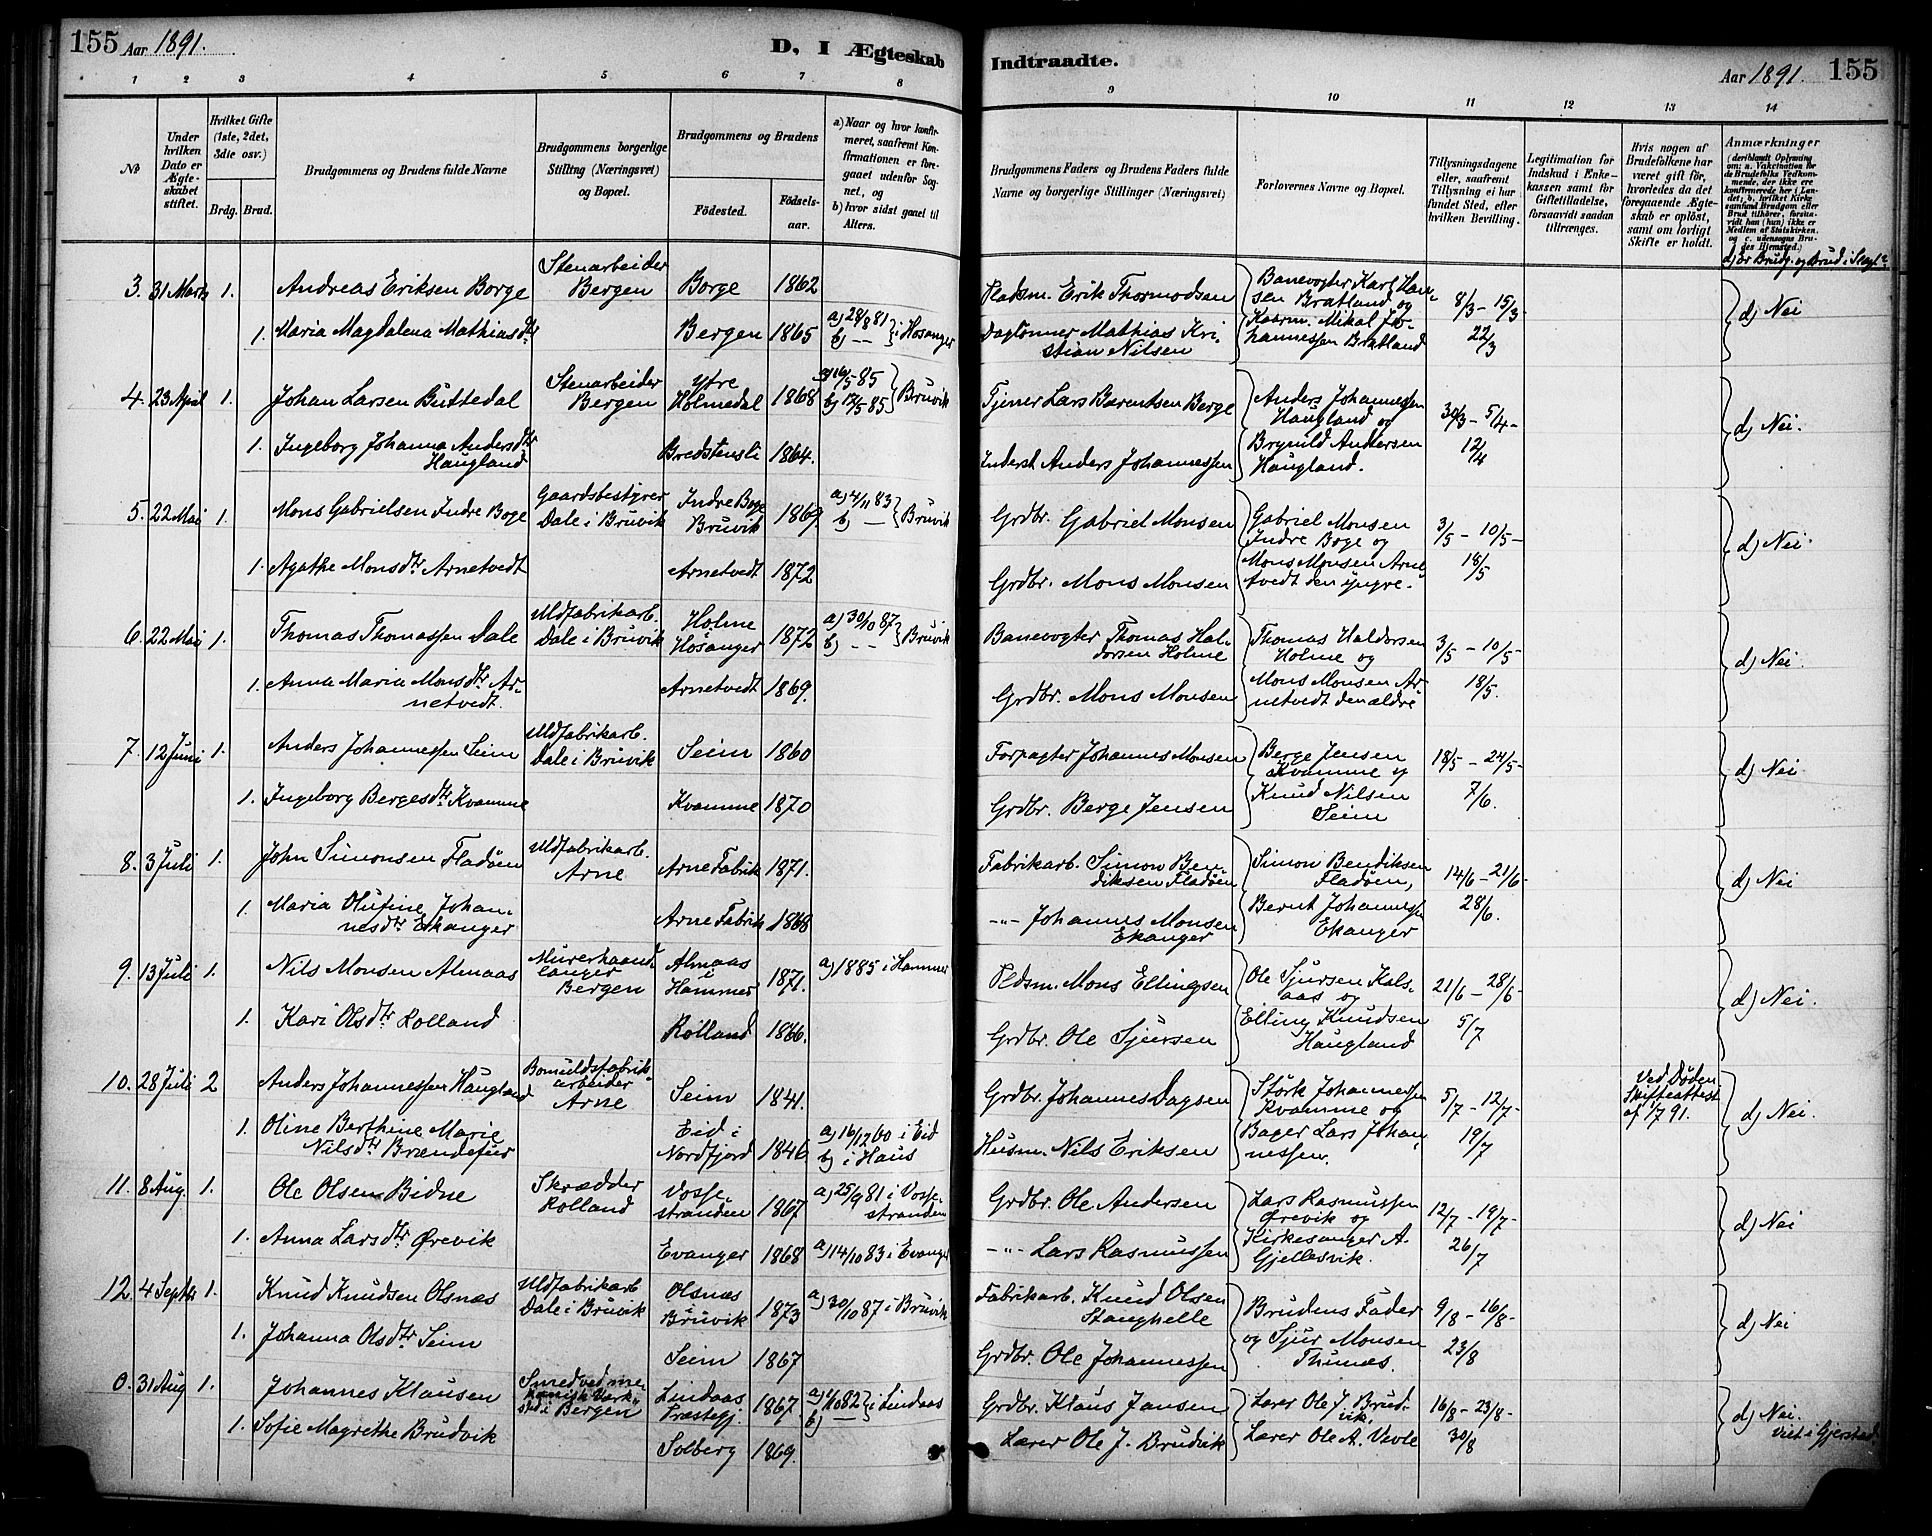 155 Aar 1891.
D, I Ægteskab
1 2 3 4 5 6 7 8
№
Under hvilken Dato er Ægteskabet stiftet.
Hvilket Gifte (1ste, 2det, 3die osv.)
Brdg. Brud.
Brudgommens og Brudens fulde Navne
Brudgommens borgerlige Stilling (Næringsvei) og Bopæl.
Brudgommens og Brudens
Fødested.
Fødsels-aar.
a) Naar og hvor konfirmeret, saafremt Konfirmationen er foregaaet udenfor Sognet, og
b) hvor sidst gaaet til Alters.
3. 31 Marts 1. Andreas Eriksen Borge Stenarbeider Bergen Borge 1862
1. Maria Magdalena Mathiasdtr Bergen 1865 a) 28/8 81 b) — i Hosanger
4. 23 April 1. Johan Larsen Buttedal Stenarbeider Bergen Ytre Holmedal 1868 a) 10/5 85 b) 17/5 85 Bruvik
1. Ingeborg Johanna Andersdtr Haugland Bredstensli 1864.
5. 22 Mai 1. Mons Gabrielsen Indre Boge Gaardsbestyrer Dale i Bruvik Indre Boge Bruvik 1869 a) 4/11 83 b) — Bruvik
1. Agathe Monsdtr Arnetvedt Arnetvedt 1872
6. 22 Mai 1. Thomas Thomassen Dale Uldfabrikarb. Dale i Bruvik Holme Hosanger 1872 a) 30/10 87 b) — Bruvik
1. Anna Maria Monsdtr Arnetvedt. Arnetvedt 1869.
7. 12 Juni 1. Anders Johannessen Seim Uldfabrikarb. Dale i Bruvik Seim 1860
1. Ingeborg Bergesdtr Kvamme Kvamme 1870
8. 3 Juli 1. John Simonsen Fladøen Uldfabrikarb. Arne Arne Fabrik 1871.
1. Maria Olufine Johannesdtr Ekanger Arne Fabrik 1868
9. 13 Juli 1. Nils Monsen Almaas Murerhaandlanger Bergen Almaas i Hammer 1871. a) 1885 i Hammer
1. Kari Olsdtr Rolland Rolland 1866.
10. 28 Juli 2 Anders Johannessen Haugland Bomuldsfabrikarbeider Arne Seim 1841.
1. Oline Berthine Marie Nilsdtr Brændefur Eid i Nordfjord 1846 a) 16/12 60 i Eid b) i Haus
11. 8 Aug. 1. Ole Olsen Bidne Skrædder Rolland Vossestranden 1867 a) 25/9 81 i Vossestranden
1. Anna Larsdtr Ørevik Evanger 1868 a) 14/10 83 i Evanger
12. 4 Septbr 1. Knud Knudsen Olsnæs Uldfabrikarb Dale i Bruvik Olsnæs Bruvik 1873 a) 30/10 87 i Bruvik
1. Johanna Olsdtr Seim Seim 1867
0. 31 Aug 1. Johannes Klausen Smed ved mekanisk Værksted i Bergen Lindaas Præstegj. 1867 a) 1/10 82 b) — i Lindaas
1. Sofie Magrethe Brudvik Solberg 1869.
Indtraadte.
Aar 1891. 155
9 10 11 12 13 14
Brudgommens Faders og Brudens Faders fulde Navne og borgerlige Stillinger (Næringsvei)
Forlovernes Navne og Bopæl.
Tillysningsdagene eller, saafremt Tillysning ei har fundet Sted, efter hvilken Bevilling.
Legitimation for Indskud i Enkekassen samt for Giftetilladelse, forsaavidt saadan tiltrænges.
Hvis nogen af Brudefolkene har været gift før, hvorledes da det foregaaende Ægteskab er opløst, samt om lovligt Skifte er holdt.
Anmærkninger
(deriblandt Oplysning om: a. Vakcination for de Brudefolks Vedkommende, der ikke ere konfirmerede her i Landet; b. hvilket Kirkesamfund Brudgom eller Brud tilhører, forsaavidt han (hun) ikke er Medlem af Statskirken, og c. udensogns Brudes Hjemsted.)
d) Er Brudg. og Brud i Slægt?
Pladsm. Erik Thormodsen Banevogter Karl Hansen Bratland og 8/3 – 15/3 – d) Nei
Daglønner Mathias Kristian Nilsen Kaarm. Mikal Johannessen Bratland 22/3
Tjener Lars Barentsen Berge Anders Johannessen Haugland og 30/3 – 5/4 – d) Nei.
Inderst. Anders Johannessen Brynild Andersen Haugland. 12/4
Grdbr. Gabriel Monsen Gabriel Monsen Indre Boge og 3/5 – 10/5 – d) Nei.
Grdbr. Mons Monsen Mons Monsen Arnetvedt den yngre. 18/5
Banevogter Thomas Haldorsen Holme Thomas Haldorsen Holme og 3/5 – 10/5 – d) Nei.
Grdbr. Mons Monsen Mons Monsen Arnetvedt den ældre 18/5.
Forpagter Johannes Monsen Berge Jensen Kvamme og 18/5 – 24/5 – d) Nei.
Grdbr. Berge Jensen Knud Nilsen Seim 7/6.
Fabrikarb. Simon Bendiksen Fladøen Simon Bendiksen Fladøen, 14/6 – 21/6 – d) Nei
–"– Johannes Monsen Ekanger Bernt Johannessen Ekanger 28/6.
Pldsm. Mons Ellingsen Ole Sjursen Kalsaas og 21/6 – 28/6 – d) Nei.
Grdbr. Ole Sjursen Elling Knudsen Haugland 5/7
Grdbr. Johannes Dagsen Størk Johannessen Kvamme og 5/7 – 12/7 – Ved Døden. Skifteattest af 1/7 91. d) Nei.
Husm. Nils Eriksen Bager Lars Johannessen. 19/7
Grdbr. Ole Andersen Lars Rasmussen Ørevik og 12/7 – 19/7 – d) Nei
–"– Lars Rasmussen Kirkesanger A. Gjellesvik. 26/7
Fabrikarb. Knud Olsen Stanghelle Brudens Fader 9/8 – 16/8 – d) Nei
Grdbr. Ole Johannessen og Sjur Monsen Thunæs. 23/8
Grdbr. Klaus Jansen Lærer Ole J. Brudvik. 16/8 – 23/8 – d) Nei.
Lærer Ole J. Brudvik Lærer Ole A. 30/8 Viet i Gjerstad.